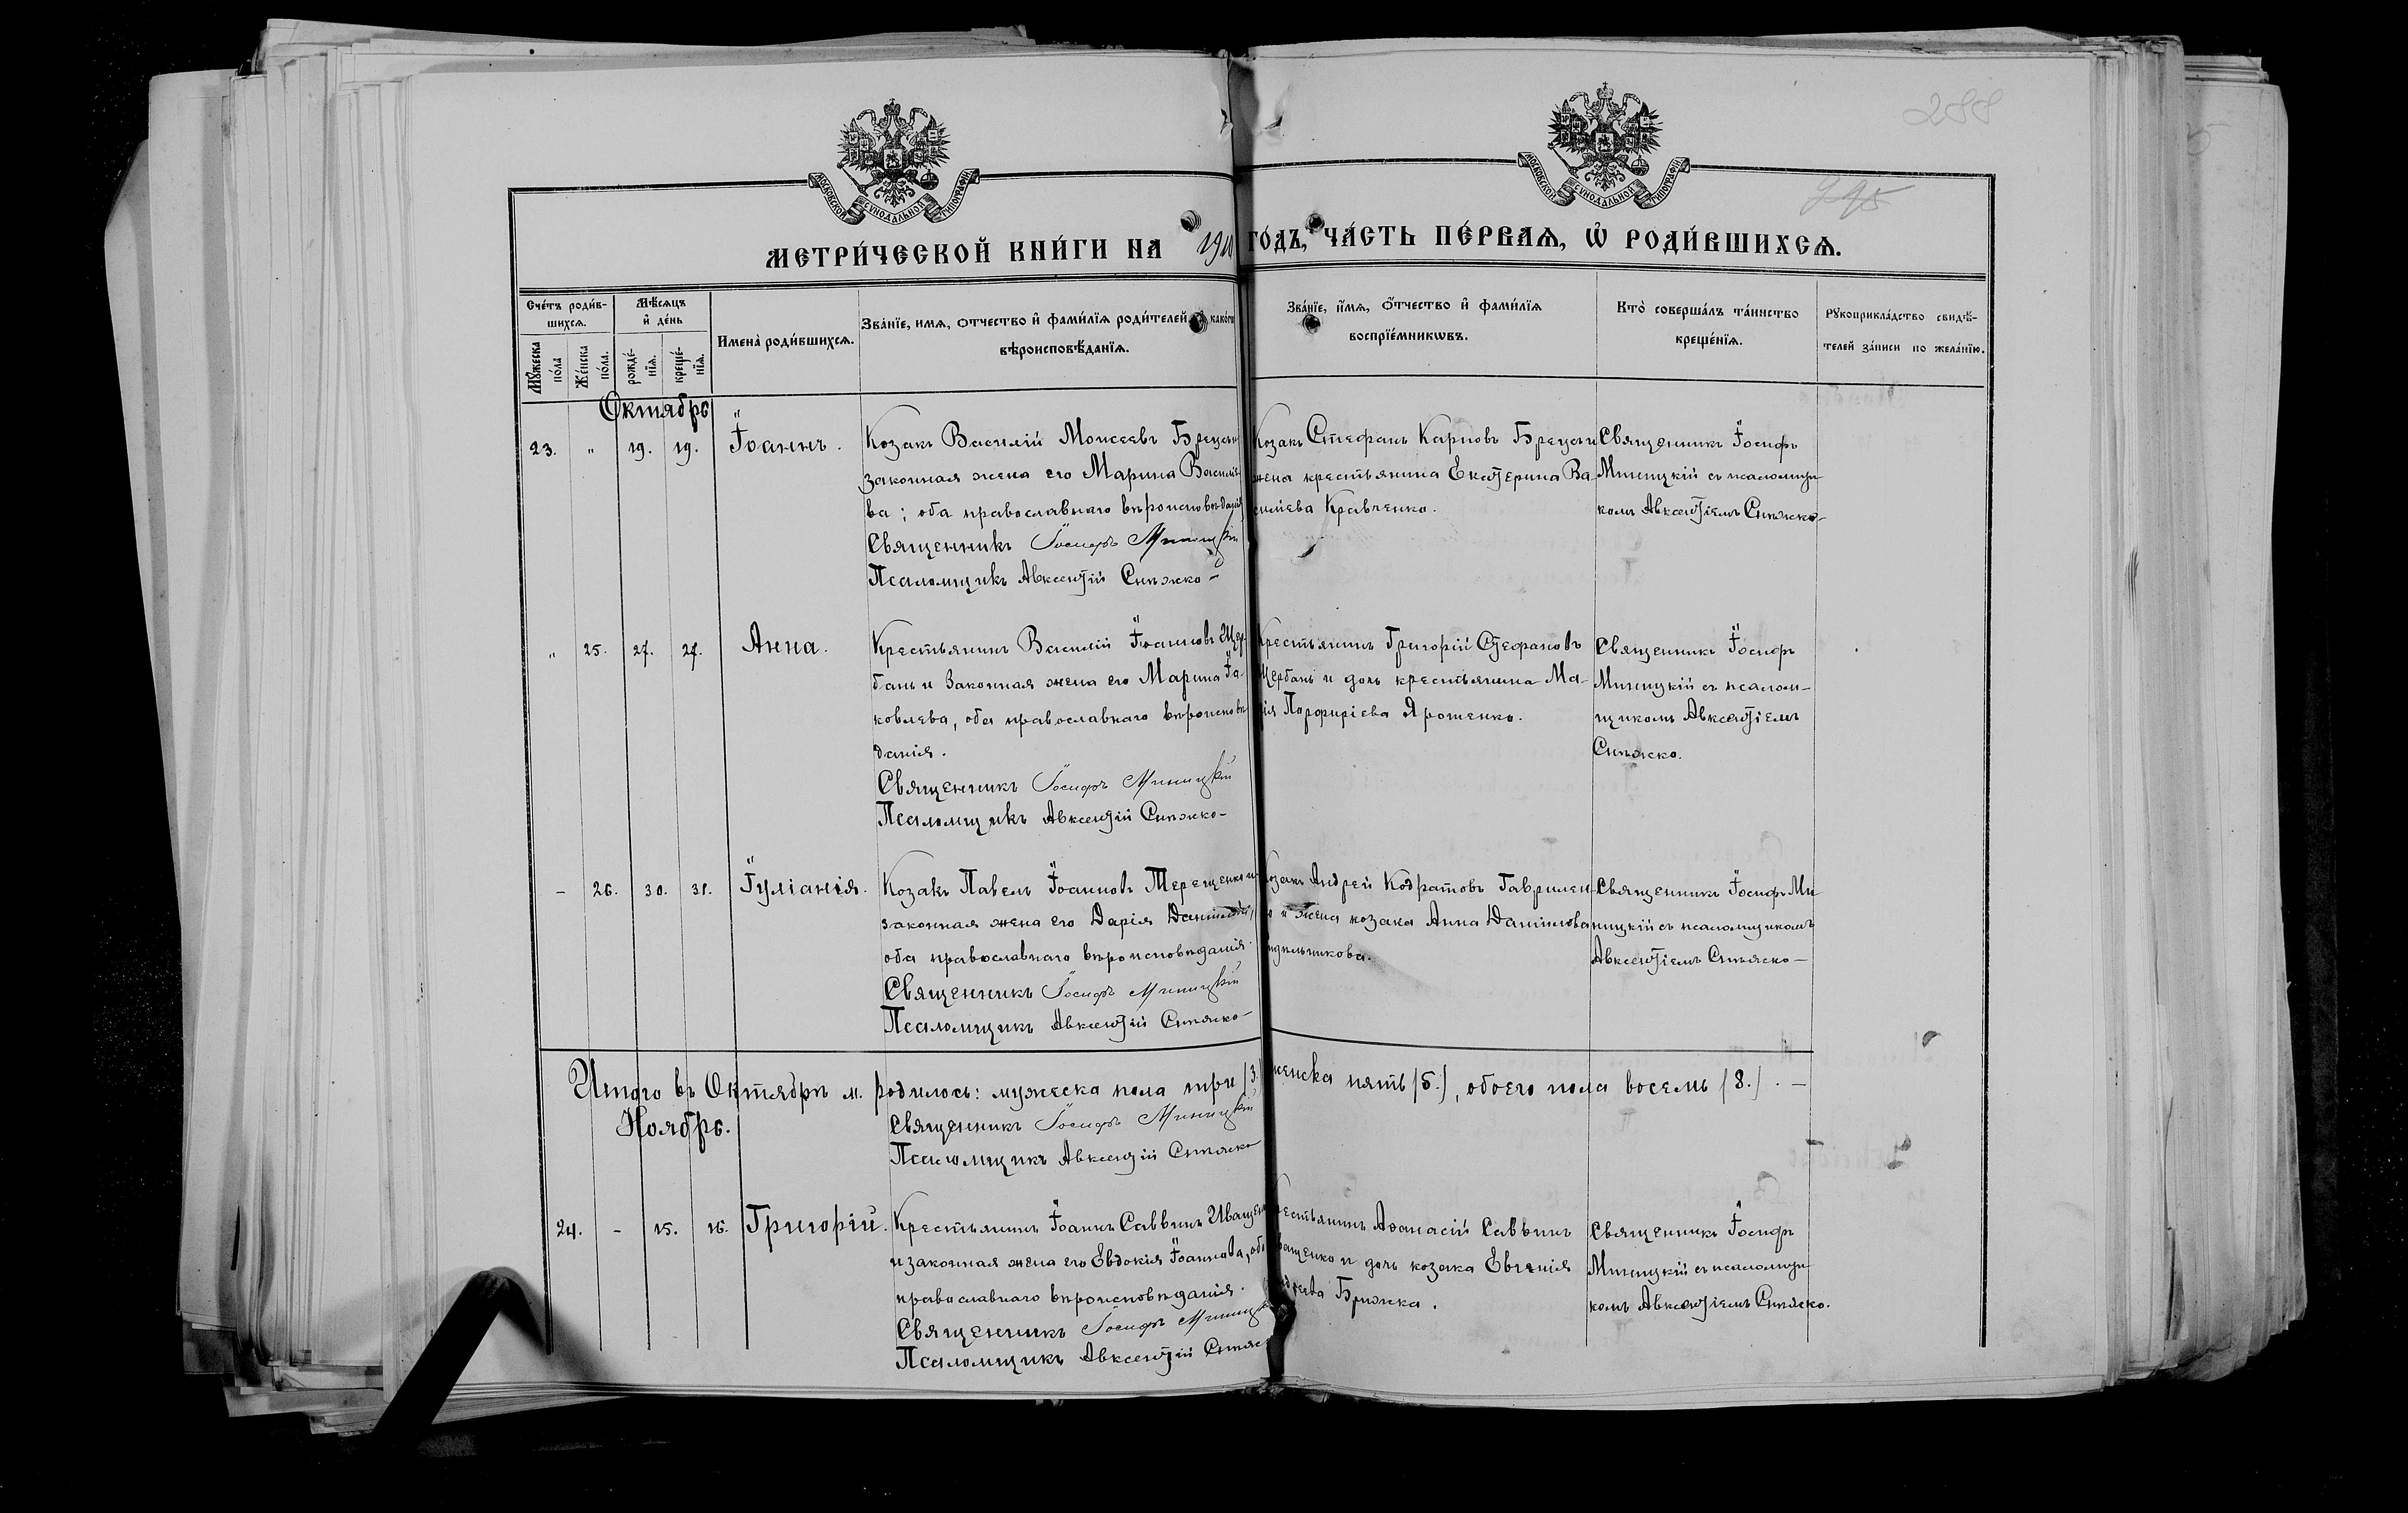 288
МОСКОВСКОЙ СУНОДАЛЬНОЙ ТИПОГРАФІИ
МОСКОВСКОЙ СУНОДАЛЬНОЙ ТИПОГРАФІИ
МЕТРИ́ЧЕСКОЙ КНИ́ГИ НА 191 ГО́ДЪ, ЧА́СТЬ ПЕ́РВАѦ, Ѡ҆ РОДИ́ВШИХСѦ.
Сче́тъ роди́в-
шихсѧ.
Мꙋ́жеска по́ла
Же́нска по́ла.
Мѣ́сѧцъ
и҆ де́нь
рожде́-
нїѧ.
креще́-
нїѧ.
Имена̀ роди́вшихсѧ.
Зва́нїе, имѧ, отчество и҆ фами́лїѧ роди́телей, и҆ како́гѡ
вѣроисповѣ́данїѧ.
Зва́нїе, и҆́мѧ, ѻ҆́тчество и҆ фами́лїѧ
воспрїе́мникѡвъ.
Кто̀ соверша́лъ та́инство
креще́нїѧ.
Рꙋкоприкла́дство свидѣ́-
телей за́писи по жела́нїю.
Октябрь
23. " 19. 19. Іоаннъ.
Козакъ Василій Моисеевъ
законная жена его Марина Василь
ва; оба православнаго вѣроисповѣданія
Священникъ Іосифъ Миницкій
Псаломщикъ Авксентій Снѣжко-
Козакъ Стефанъ Карповъ
жена крестьянина Екатерина Ва-
сильева Кравченко.
Священникъ Іосифъ
Миницкій съ псаломщи-
комъ Авксентіемъ Снѣжко-
" 25. 27. 27. Анна.
Крестьянинъ Василій Іоанновъ Щер-
бань и законная жена его Марина Іа-
ковлева, оба православнаго вѣроисповѣ-
данія.
Священникъ Іосифъ Миницкій
Псаломщикъ Авксентій Снѣжко-
Крестьянинъ Григорій Стефановъ
Щербань и дочь крестьянина Ма-
рія Порфиріева Ярошенко.
Священникъ Іосифъ
Миницкій съ псалом-
щикомъ Авксентіемъ
Снѣжко.
- 26. 30. 31. Іуліанія.
Козакъ Павелъ Іоанновъ Терещенко и
законная жена его Дарія Даніилова,
оба православнаго вѣроисповѣданія.
Священникъ Іосифъ Миницкій
Псаломщикъ Авксентій Снѣжко-
Козакъ Андрей Кодратовъ Гаврилен-
ко и жена козака Анна Даніилова
Священникъ Іосифъ Ми-
ницкій съ псаломщикомъ
Авксентіемъ Снѣжко-
Итого въ Октябрѣ м. родилось: мужеска пола три (3.) женска пять (5.), обоего пола восемь (8.). -
Священникъ Іосифъ Миницкій
Псаломщикъ Авксентій Снѣжко
Ноябрь.
24. - 15. 16. Григорій.
Крестьянинъ Іоаннъ Саввинъ Иващен
и законная жена его Евдокія Іоаннова, оба
православнаго вѣроисповѣданія.
Священникъ Іосифъ Миницк
Псаломщикъ Авксентій Снѣж
Крестьянинъ Аѳанасій Саввинъ
Иващенко и дочь козака Евгенія
Брижка.
Священникъ Іосифъ
Миницкій съ псаломщи-
комъ Авксентіемъ Снѣжко.